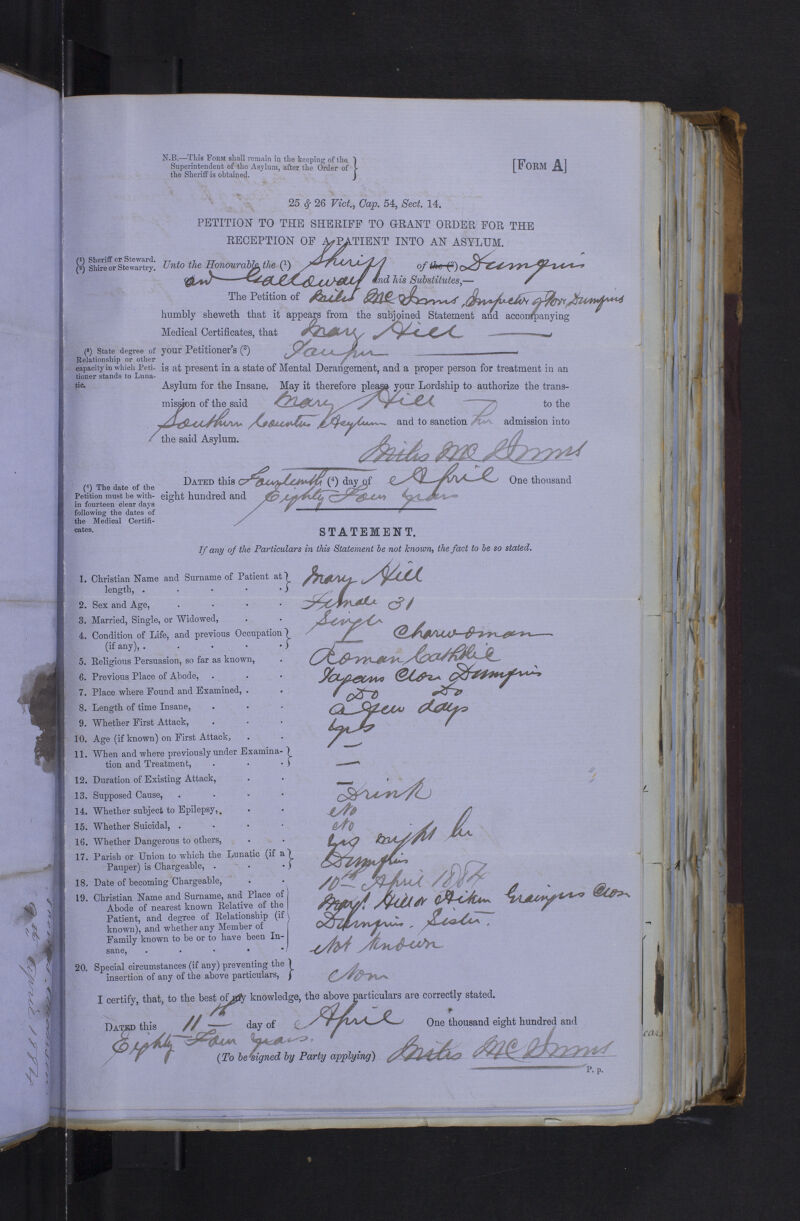 N.B.—This Form shall remain in the keeping of the
Superintendent of the Asylum, after the Order of
the Sheriff is obtained.
[Form A]
25 & 26 Vict., Cap. 54, Sect. 14.
PETITION TO THE SHERIFF TO GRANT ORDER FOR THE
RECEPTION OF A PATIENT INTO AN ASYLUM.
(¹) Sheriff or Steward.
(²) Shire or Stewartry.
Unto the Honourable the (¹) Sheriff of the (²) Dumfries
and Galloway and his Substitutes,—
The Petition of Miles McInnes, Inspector of Poor, Dumfries
humbly sheweth that it appears from the subjoined Statement and accompanying
Medical Certificates, that Mary Hill
(³) State degree of
Relationship or other
capacity in which Peti-
tioner stands to Luna-
tic.
your Petitioner's (³) Pauper
is at present in a state of Mental Derangement, and a proper person for treatment in an
Asylum for the Insane. May it therefore please your Lordship to authorize the trans-
mission of the said Mary Hill to the
Southern Counties Asylum and to sanction her admission into
the said Asylum.
Miles McInnes
(⁴) The date of the
Petition must be with-
in fourteen clear days
following the dates of
the Medical Certifi-
cates.
Dated this Fourteenth (⁴) day of April One thousand
eight hundred and Eighty Four years
STATEMENT.
If any of the Particulars in this Statement be not known, the fact to be so stated.
1. Christian Name and Surname of Patient at
length, . Mary Hill
2. Sex and Age, Female 31
3. Married, Single, or Widowed, Single
4. Condition of Life, and previous Occupation
(if any), . Charwoman
5. Religious Persuasion, so far as known, Roman Catholic
6. Previous Place of Abode, Close Dumfries
7. Place where Found and Examined, Do Do
8. Length of time Insane, A few days
9. Whether First Attack, yes
10. Age (if known) on First Attack, —
11. When and where previously under Examina-
tion and Treatment, —
12. Duration of Existing Attack, —
13. Supposed Cause, Drink
14. Whether subject to Epilepsy, No
15. Whether Suicidal, No
16. Whether Dangerous to others, yes might be
17. Parish or Union to which the Lunatic (if a
Pauper) is Chargeable, Dumfries
18. Date of becoming Chargeable, 10th April 1884
19. Christian Name and Surname, and Place of
Abode of nearest known Relative of the
Patient, and degree of Relationship (if
known), and whether any Member of
Family known to be or to have been In-
sane,
Margt Hill or Aitken Graingers Close
Dumfries. Sister.
Not known
20. Special circumstances (if any) preventing the
insertion of any of the above particulars, None
I certify, that, to the best of my knowledge, the above particulars are correctly stated.
Dated this 11th day of April One thousand eight hundred and
Eighty Four years.
(To be signed by Party applying) Miles McInnes
P. p.